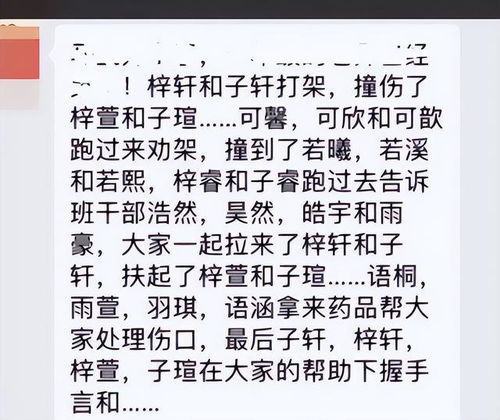 ！梓轩和子轩打架，撞伤了
梓萱和子瑄……可馨，可欣和可歆
跑过来劝架，撞到了若曦，若溪
和若熙，梓睿和子睿跑过去告诉
班干部浩然，昊然，皓宇和雨
豪，大家一起拉来了梓轩和子
轩，扶起了梓萱和子瑄……语桐，
雨萱，羽琪，语涵拿来药品帮大
家处理伤口，最后子轩，梓轩，
梓萱，子瑄在大家的帮助下握手
言和……